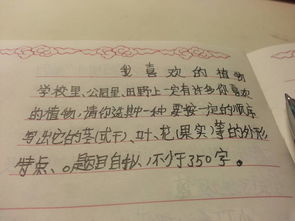 我喜欢的植物
学校里、公园里、田野上一定有许多你喜欢
的植物,请你选期中一种要按一定的顺序
写出它的茎(或干)、叶、花(果实)等的外形
特点、。题目自拟,不少于350字。